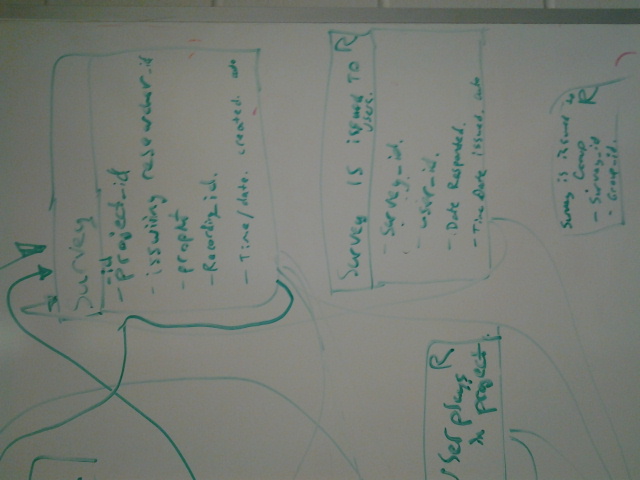 Survey
- id
- project_id
- isswiing researcher_id
- propmt
- Recording_id.
- Time/date. created. auto
Survey is issued to R
users.
- Survey_id.
- user_id.
- Date Responded.
- Time Date issued. auto
User plays R
in project.
Survey is issued to
Group R
- Survey_id
- Group_id.